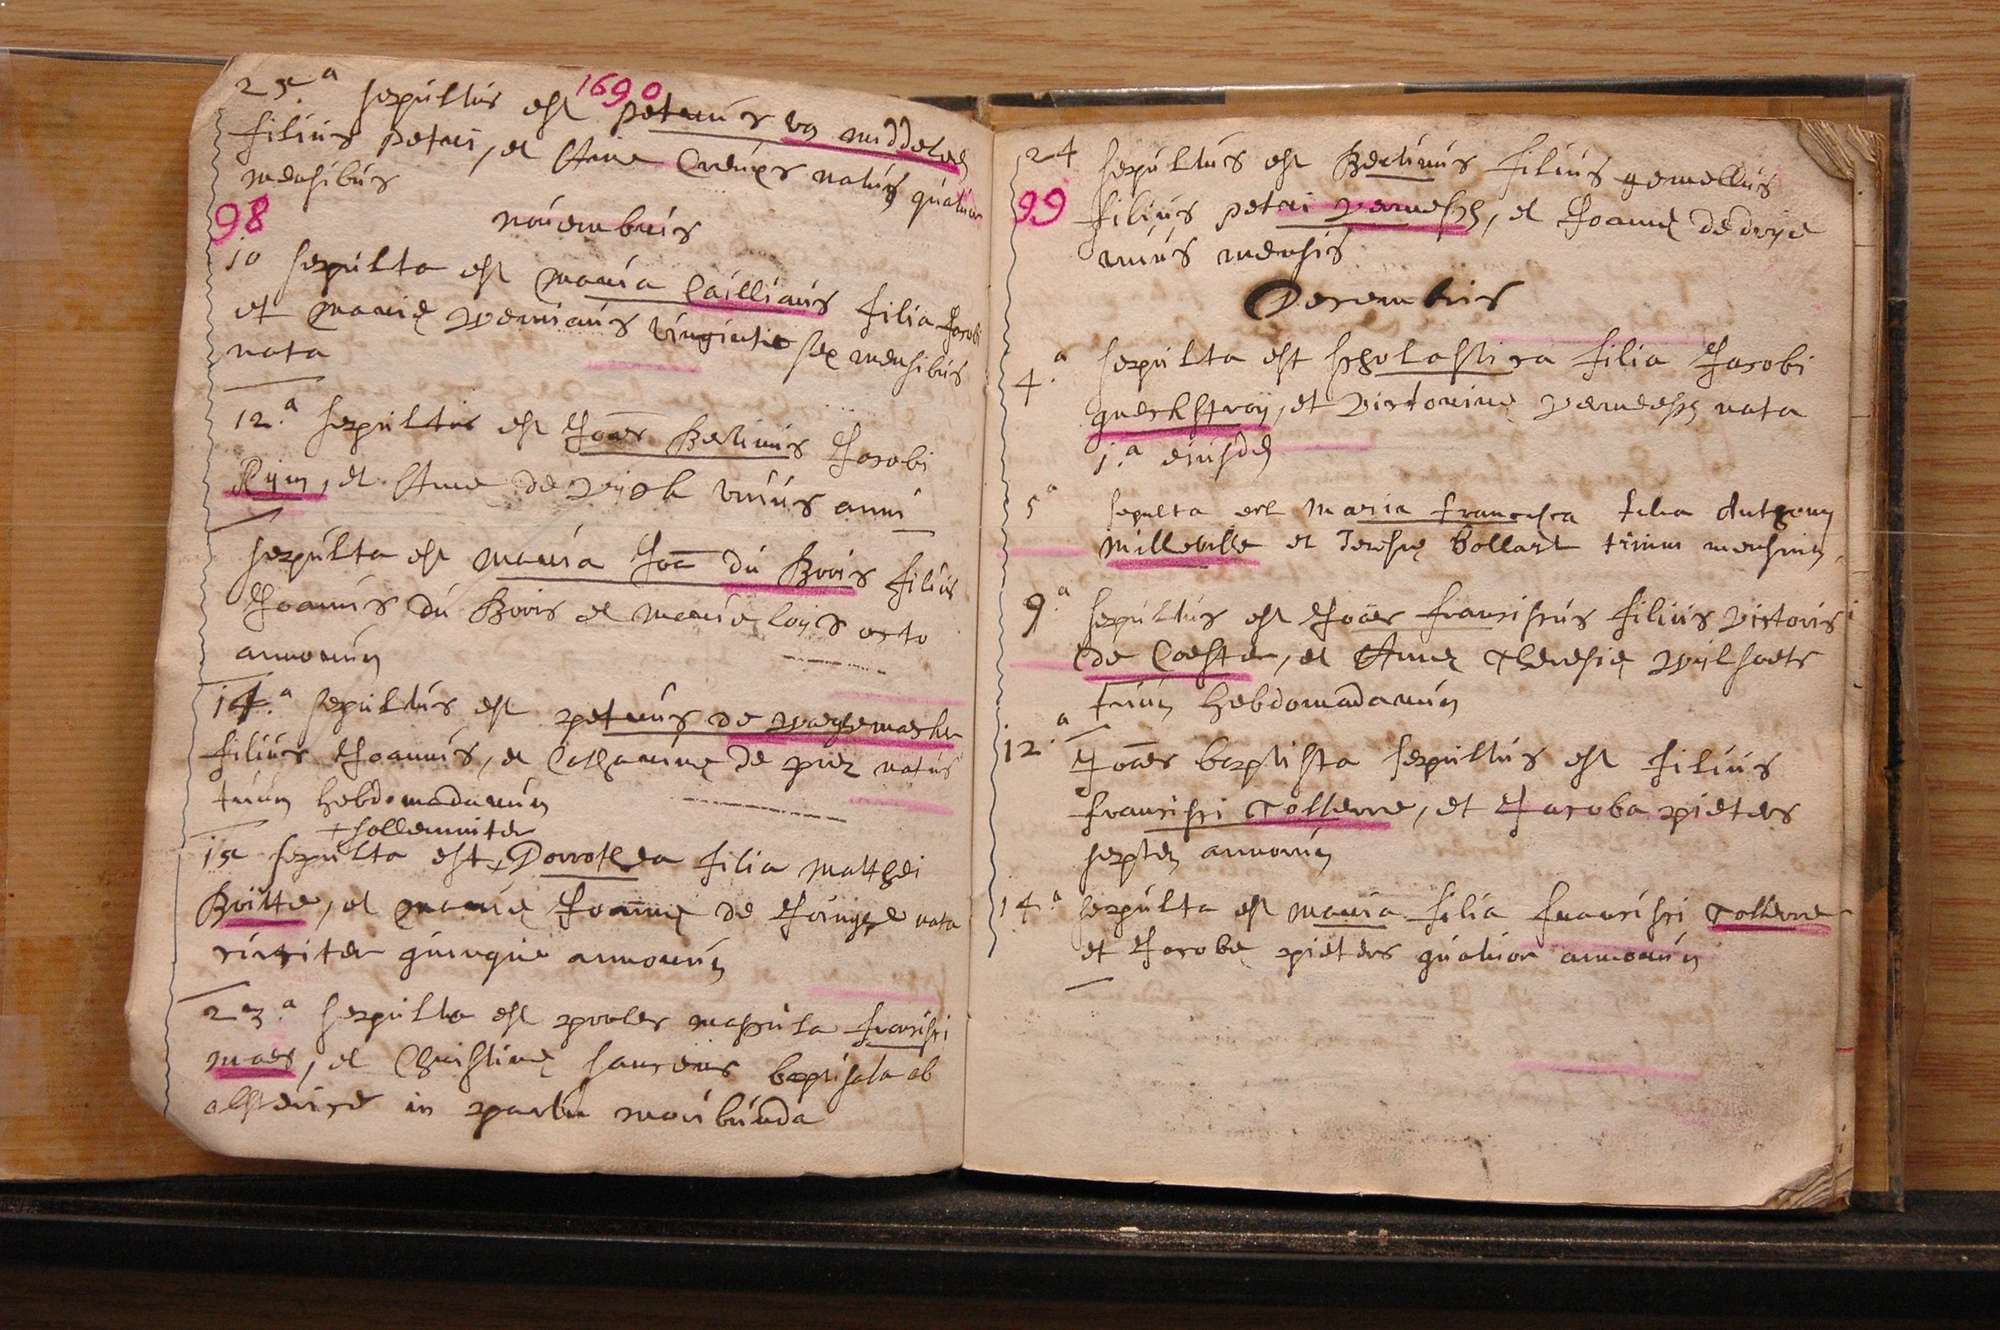 1690
25.a sepultus est petrus van middelem
filius petri, et Anne Creups natus quatuor
mensibus
98
novembris
10 sepulta est maria Cailliaus filia Jacobi
et marie vermaus viginti sex mensibus
nata
12.a sepultus est Joaes Bertinus Jacobi
Rym, et Anne de vijck unius anni
sepulta est maria Joa du Boois filius
Joannis du Boois et marie loijs octo
annorum
14.a sepultus est petrus de waghemaker
filius Joannis, et Catharine de prez natus
trium hebdomadarum
+ sollemniter
15 sepulta est + Dorothea filia matthei
Boitte, et marie Joanne de Joinghe nata
circiter quinque annorum
23.a sepulta est proles mascula francisci
maes, et Christine laureins baptisata ab
obstetrice in partu moribunda
24 sepultus est Bertinus filius gemellus
99 filius petri vermesch, et Joanne de drije
unius mensis
Decembris
4.a sepulta est scholastica filia Jacobi
querckstroij, et victorine vermesch nata
1.a eiusdem
5a sepulta est Maria francisca filia Anthonij
Milleville et Teresie Bollart trium mensium
9.a sepultus est Joaes franciscus filius victoris
de Coester, et Anne Theresie wijlsoets
trium hebdomadarum
12.a Joaes baptista sepultus est filius
francisci Tollenre, et Jacoba pieters
septem annorum
14.a sepulta est maria filia francisci Tollenre
et Jacobe pieters quatuor annorum